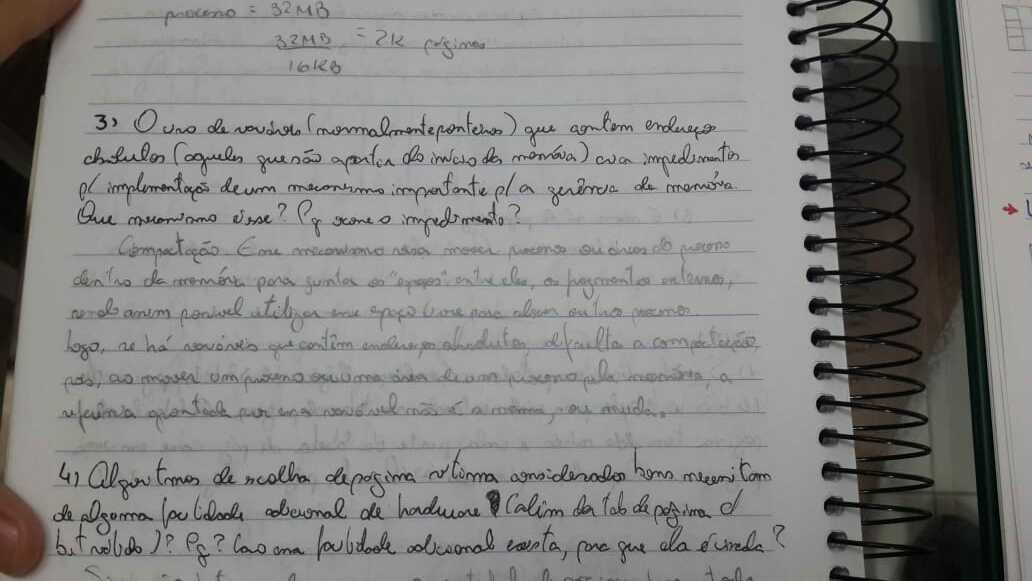 processo = 32MB
32MB = 2K páginas
16KB
3) O uso de variáveis (normalmente ponteiros) que contem endereços
absolutos (aqueles que são a partir do início da memória) cria impedimentos
p/ implementação de um mecanismo importante p/ a gerência de memória.
Que mecanismo é esse? Pq ocorre o impedimento?
Compactação. Esse mecanismo visa mover processos ou áreas do processo
dentro da memória para juntar os "espaços" entre eles, os fragmentos externos,
sendo assim possível utilizar esse espaço livre para alocar outros processos.
Logo, se há variáveis que contêm endereços absolutos, dificulta a compactação,
pois, ao mover um processo ou uma área de um processo pela memória, a
referência apontada por essa variável não é a mesma, ou muda.
4) Algoritmos de escolha de página vítima considerados bons necessitam
de alguma facilidade adicional de hardware (além da tab de página c/
bit válido)? Pq? Caso essa facilidade adicional exista, para que ela é usada?